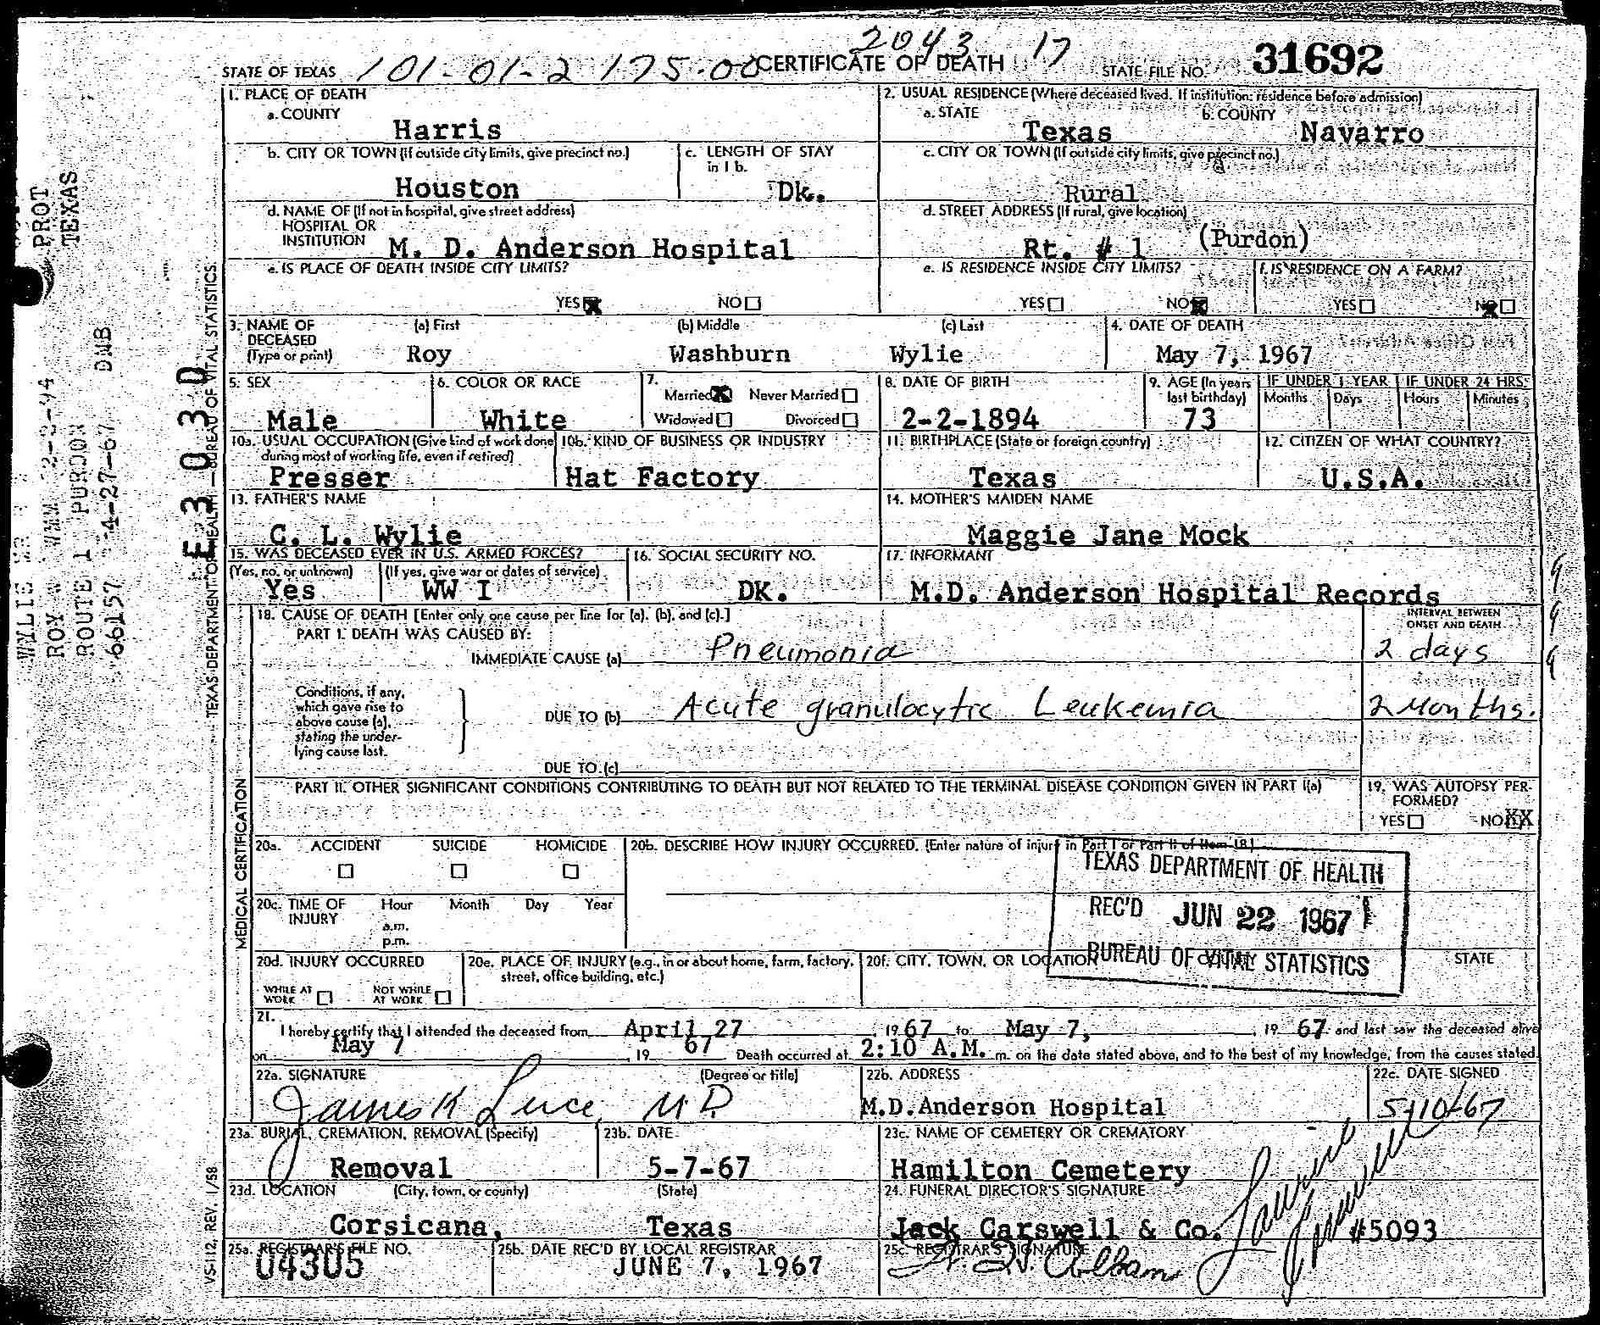 2043 17
STATE OF TEXAS 101-01-2 175-00 CERTIFICATE OF DEATH STATE FILE NO. 31692
1. PLACE OF DEATH
a. COUNTY
Harris
2. USUAL RESIDENCE (Where deceased lived. If institution: residence before admission)
a. STATE
Texas
b. COUNTY
Navarro
b. CITY OR TOWN (If outside city limits, give precinct no.)
Houston
c. LENGTH OF STAY
in 1 b.
Dk.
c. CITY OR TOWN (If outside city limits, give precinct no.)
Rural
d. NAME OF (If not in hospital, give street address)
HOSPITAL OR
INSTITUTION M. D. Anderson Hospital
d. STREET ADDRESS (If rural, give location)
Rt. # 1 (Purdon)
e. IS PLACE OF DEATH INSIDE CITY LIMITS?
YES NO
e. IS RESIDENCE INSIDE CITY LIMITS?
YES NO
f. IS RESIDENCE ON A FARM?
YES NO
3. NAME OF
DECEASED
(Type or print)
(a) First
Roy
(b) Middle
Washburn
(c) Last
Wylie
4. DATE OF DEATH
May 7, 1967
5. SEX
Male
6. COLOR OR RACE
White
7.
Married Never Married
Widowed Divorced
8. DATE OF BIRTH
2-2-1894
9. AGE (In years
last birthday)
73
IF UNDER 1 YEAR
Months Days
IF UNDER 24 HRS.
Hours Minutes
10a. USUAL OCCUPATION (Give kind of work done
during most of working life, even if retired)
Presser
10b. KIND OF BUSINESS OR INDUSTRY
Hat Factory
11. BIRTHPLACE (State or foreign country)
Texas
12. CITIZEN OF WHAT COUNTRY?
U.S.A.
13. FATHER'S NAME
C. L. Wylie
14. MOTHER'S MAIDEN NAME
Maggie Jane Mock
15. WAS DECEASED EVER IN U.S. ARMED FORCES?
(Yes, no, or unknown) (If yes, give war or dates of service)
Yes WW I
16. SOCIAL SECURITY NO.
DK.
17. INFORMANT
M.D. Anderson Hospital Records
18. CAUSE OF DEATH [Enter only one cause per line for (a), (b), and (c).]
INTERVAL BETWEEN
ONSET AND DEATH
PART I. DEATH WAS CAUSED BY:
IMMEDIATE CAUSE (a) Pneumonia 2 days
Conditions, if any,
which gave rise to
above cause (a),
stating the under-
lying cause last.
DUE TO (b) Acute granulocytic Leukemia 2 Months.
DUE TO (c)
PART II. OTHER SIGNIFICANT CONDITIONS CONTRIBUTING TO DEATH BUT NOT RELATED TO THE TERMINAL DISEASE CONDITION GIVEN IN PART I(a)
19. WAS AUTOPSY PER-
FORMED?
YES NO XX
20a. ACCIDENT SUICIDE HOMICIDE
20b. DESCRIBE HOW INJURY OCCURRED. (Enter nature of injury in Part I or Part II of Item 18.)
20c. TIME OF
INJURY
Hour Month Day Year
a.m.
p.m.
TEXAS DEPARTMENT OF HEALTH
REC'D JUN 22 1967
BUREAU OF VITAL STATISTICS
20d. INJURY OCCURRED
WHILE AT
WORK
NOT WHILE
AT WORK
20e. PLACE OF INJURY (e.g., in or about home, farm, factory,
street, office building, etc.)
20f. CITY, TOWN, OR LOCATION COUNTY STATE
21.
I hereby certify that I attended the deceased from April 27, 1967 to May 7, 1967 and last saw the deceased alive
on May 7, 1967 Death occurred at 2:10 A.M. m. on the date stated above, and to the best of my knowledge, from the causes stated.
22a. SIGNATURE (Degree or title)
James K Luce, MD
22b. ADDRESS
M.D. Anderson Hospital
22c. DATE SIGNED
5-10-67
23a. BURIAL, CREMATION, REMOVAL (Specify)
Removal
23b. DATE
5-7-67
23c. NAME OF CEMETERY OR CREMATORY
Hamilton Cemetery
23d. LOCATION (City, town, or county) (State)
Corsicana, Texas
24. FUNERAL DIRECTOR'S SIGNATURE
Jack Carswell & Co. #5093
25a. REGISTRAR'S FILE NO.
04305
25b. DATE REC'D BY LOCAL REGISTRAR
JUNE 7, 1967
25c. REGISTRAR'S SIGNATURE
MEDICAL CERTIFICATION
TEXAS DEPARTMENT OF HEALTH—BUREAU OF VITAL STATISTICS
VS-112, REV. 1/58
E3030
PROT
TEXAS
WYLIE
ROY W WMM 2-2-94
ROUTE 1 PURDON DMB
66157 4-27-67